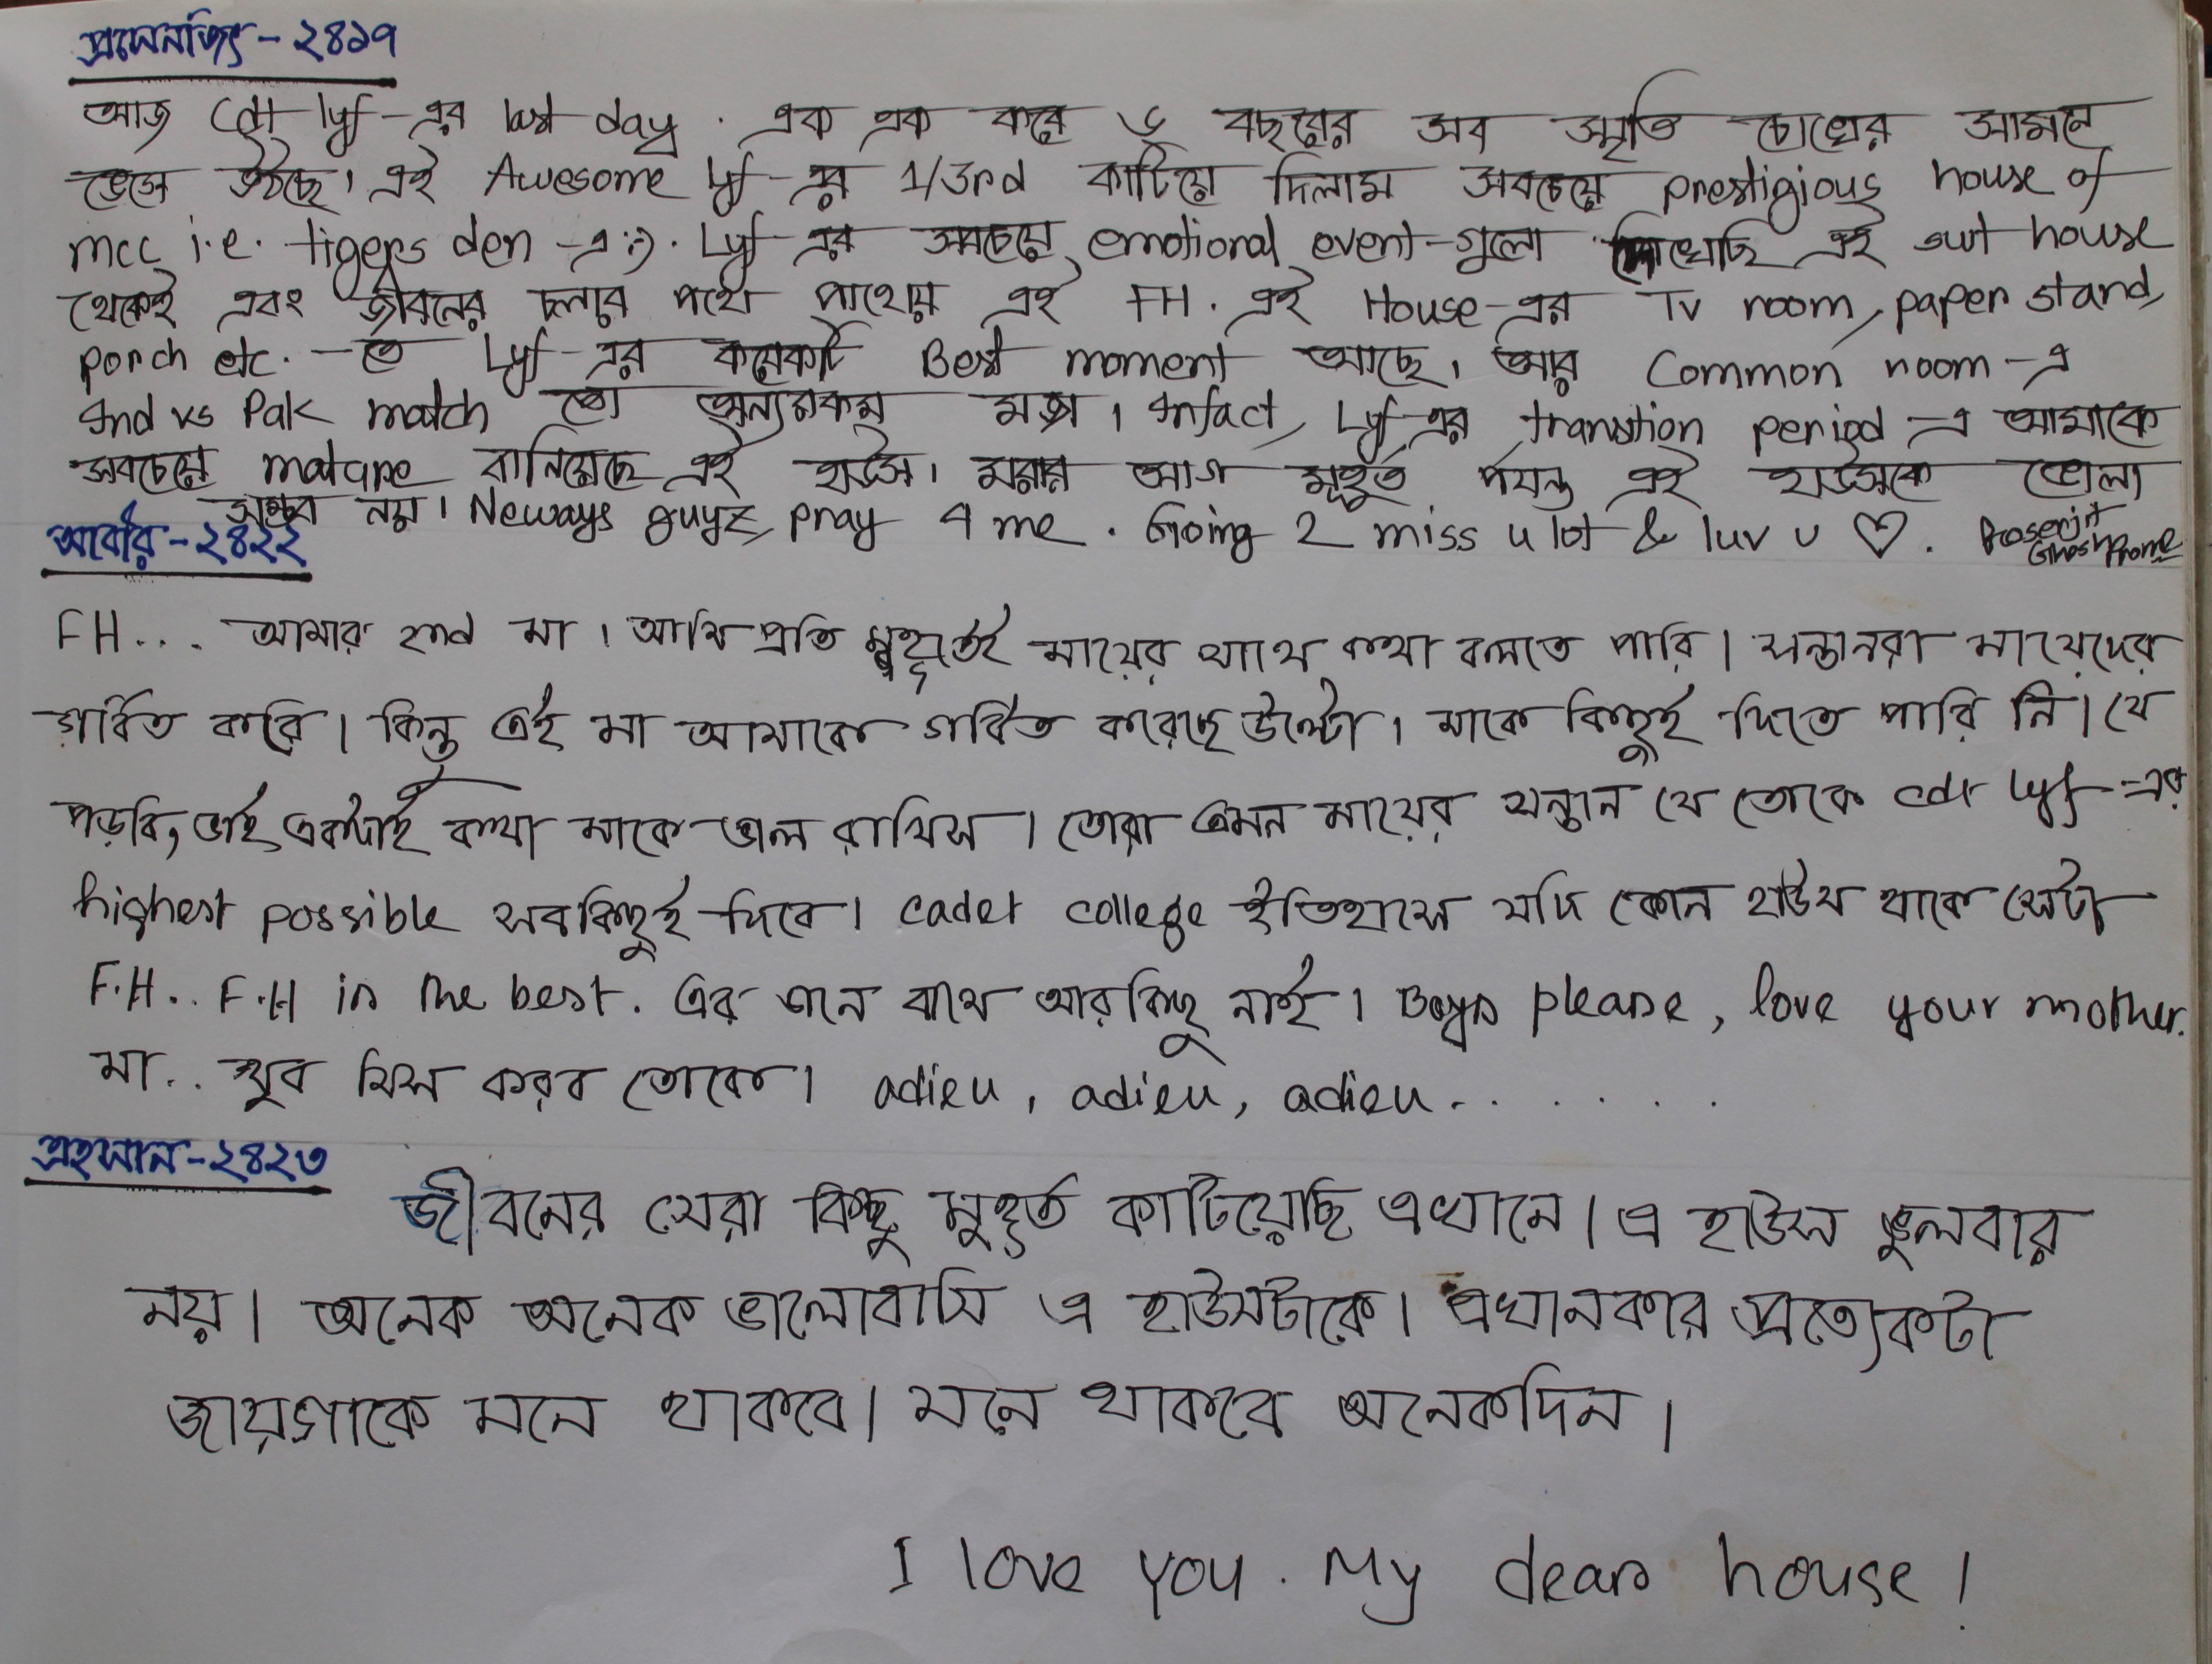 প্রসেনজিৎ - ২৪১৭
আজ Cdt lyf-এর last day. এক এক করে ৬ বছরের সব স্মৃতি চোখের সামনে
ভেসে উঠছে। এই Awesome lyf-এর 1/3rd কাটিয়ে দিলাম সবচেয়ে prestigious house of
mcc i.e. tigers den-এ :). Lyf এর সবচেয়ে emotional event-গুলো দেখেছি এই swt house
থেকেই এবং জীবনের চলার পথে পাথেয় এই FH. এই House-এর TV room, paper stand,
porch etc.-তে Lyf-এর কয়েকটি Best moment আছে। আর Common room-এ
Ind vs Pak match তো অন্যরকম মজা। Infact, Lyf-এর transition period-এ আমাকে
সবচেয়ে mature বানিয়েছে এই হাউস। মরার আগ মূহুর্ত পর্যন্ত এই হাউসকে ভোলা
সম্ভব নয়। Neways guyz, pray 4 me. Going 2 miss u lot & luv u ♡. Prosenjit
Ghosh Prome
আবীর - ২৪২২
FH... আমার 2nd মা। আমি প্রতি মুহূর্তেই মায়ের সাথে কথা বলতে পারি। সন্তানরা মায়েদের
গর্বিত করে। কিন্তু এই মা আমাকে গর্বিত করেছে উল্টো। মাকে কিছুই দিতে পারি নি। যে
পড়বি, ভাই একটাই কথা মাকে ভাল রাখিস। তোরা এমন মায়ের সন্তান যে তোকে cdt lyf-এর
highest possible সবকিছুই দিবে। cadet college ইতিহাসে যদি কোন হাউস থাকে সেটা
F.H.. F.H is the best. এর মানে বাসে আর কিছু নাই। Boys please, love your mother.
মা.. খুব মিস করব তোকে। adieu, adieu, adieu.......
এহসান - ২৪২৩
জীবনের সেরা কিছু মুহূর্ত কাটিয়েছি এখানে। এ হাউস ভুলবার
নয়। অনেক অনেক ভালোবাসি এ হাউসটাকে। এখানকার প্রত্যেকটা
জায়গাকে মনে থাকবে। মনে থাকবে অনেকদিন।
I love you. My dear house!